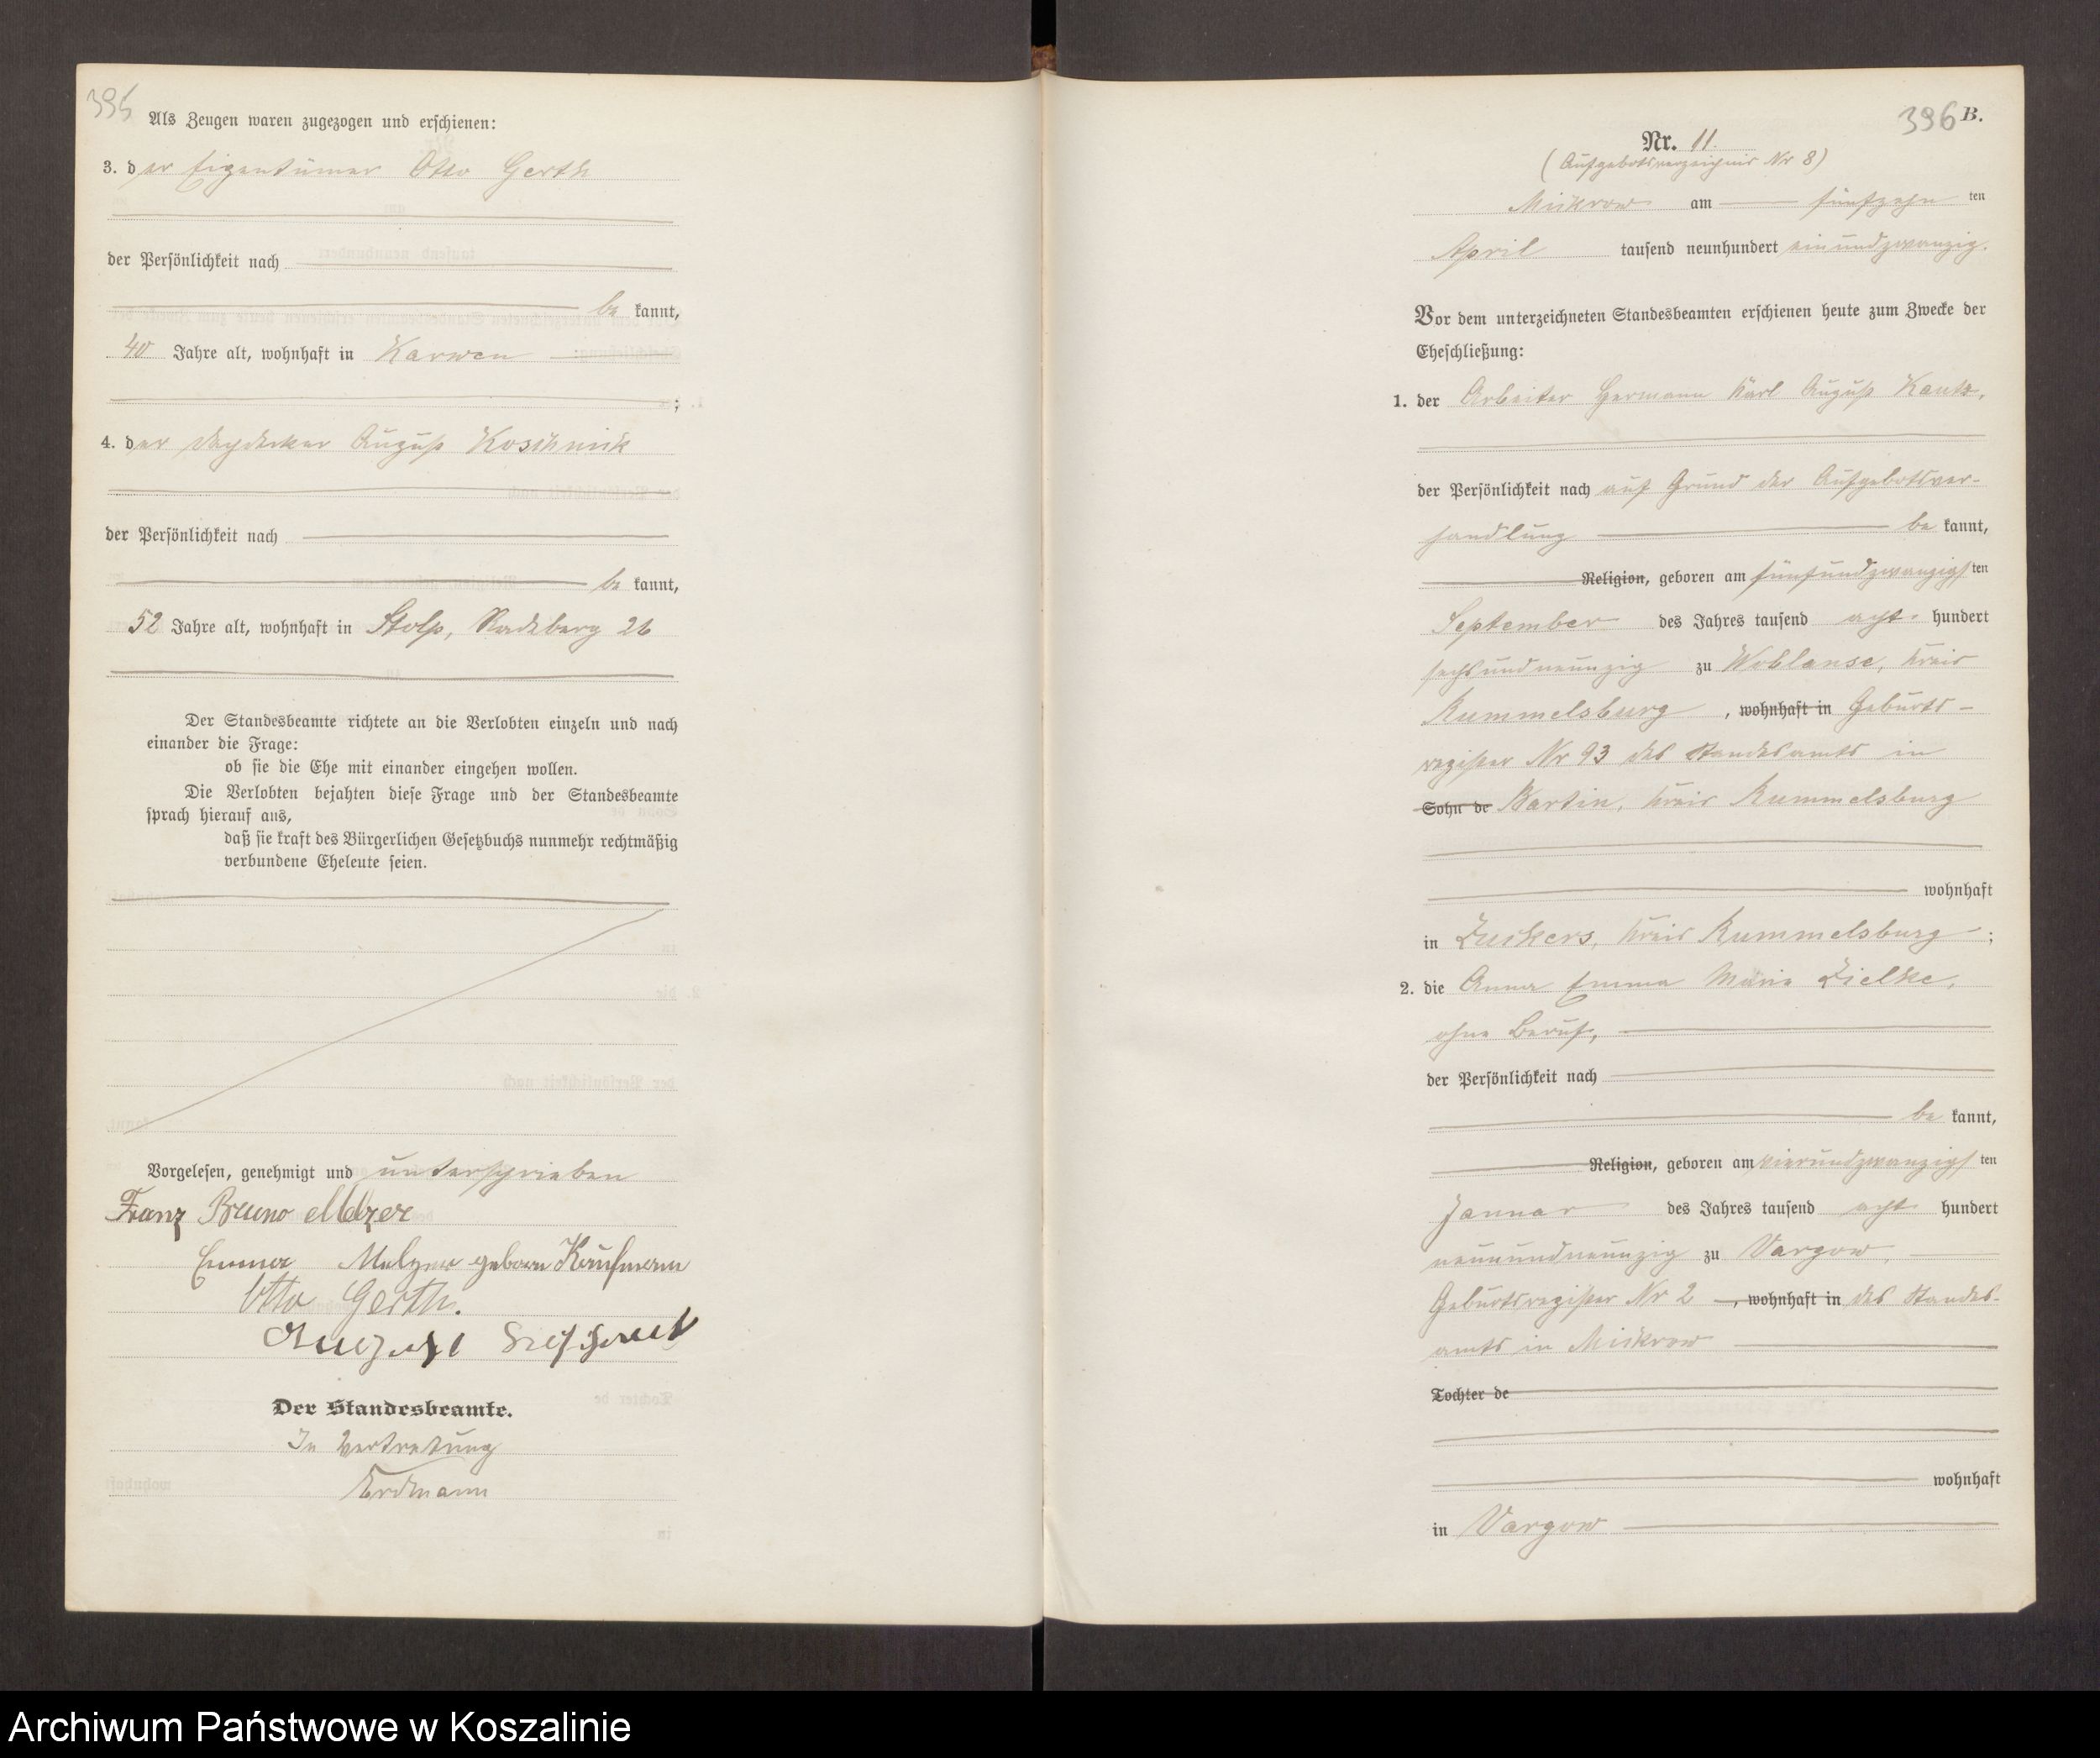 395
Als Zeugen waren zugezogen und erschienen:
3. der Eigentümer Otto Gerth
der Persönlichkeit nach
be kannt,
40 Jahre alt, wohnhaft in Karwen
;
4. der Dachdecker August Koschnick
der Persönlichkeit nach
be kannt,
52 Jahre alt, wohnhaft in Stolp, Radeberg 26
Der Standesbeamte richtete an die Verlobten einzeln und nach
einander die Frage:
ob sie die Ehe mit einander eingehen wollen.
Die Verlobten bejahten diese Frage und der Standesbeamte
sprach hierauf aus,
daß sie kraft des Bürgerlichen Gesetzbuchs nunmehr rechtmäßig
verbundene Eheleute seien.
Vorgelesen, genehmigt und unterschrieben
Franz Bruno Melzer
Emma Melzer geboren Kaufmann
Otto Gerth.
August
Der Standesbeamte.
In Vertretung
Erdmann
396 B.
Nr. 11.
(Aufgebotsverzeichnis Nr 8)
Mickrow am fünfzehn ten
April tausend neunhundert einundzwanzig.
Vor dem unterzeichneten Standesbeamten erschienen heute zum Zwecke der
Eheschließung:
1. der Arbeiter Hermann Karl August Kautz,
der Persönlichkeit nach auf Grund der Aufgebotsver-
handlung be kannt,
Religion, geboren am fünfundzwanzigsten
September des Jahres tausend acht hundert
sechsundneunzig zu Woblanse, Kreis
Rummelsburg, wohnhaft in Geburts-
register Nr 93 des Standesamts in
Sohn de Bartin, Kreis Rummelsburg
wohnhaft
in Zuckers, Kreis Rummelsburg;
2. die Anna Emma Marie Zielke,
ohne Beruf,
der Persönlichkeit nach
be kannt,
Religion, geboren am vierundzwanzigsten
Januar des Jahres tausend acht hundert
neunundneunzig zu Vargow,
Geburtsregister Nr 2, wohnhaft in des Standes-
amts in Mickrow
Tochter de
wohnhaft
in Vargow
Archiwum Państwowe w Koszalinie